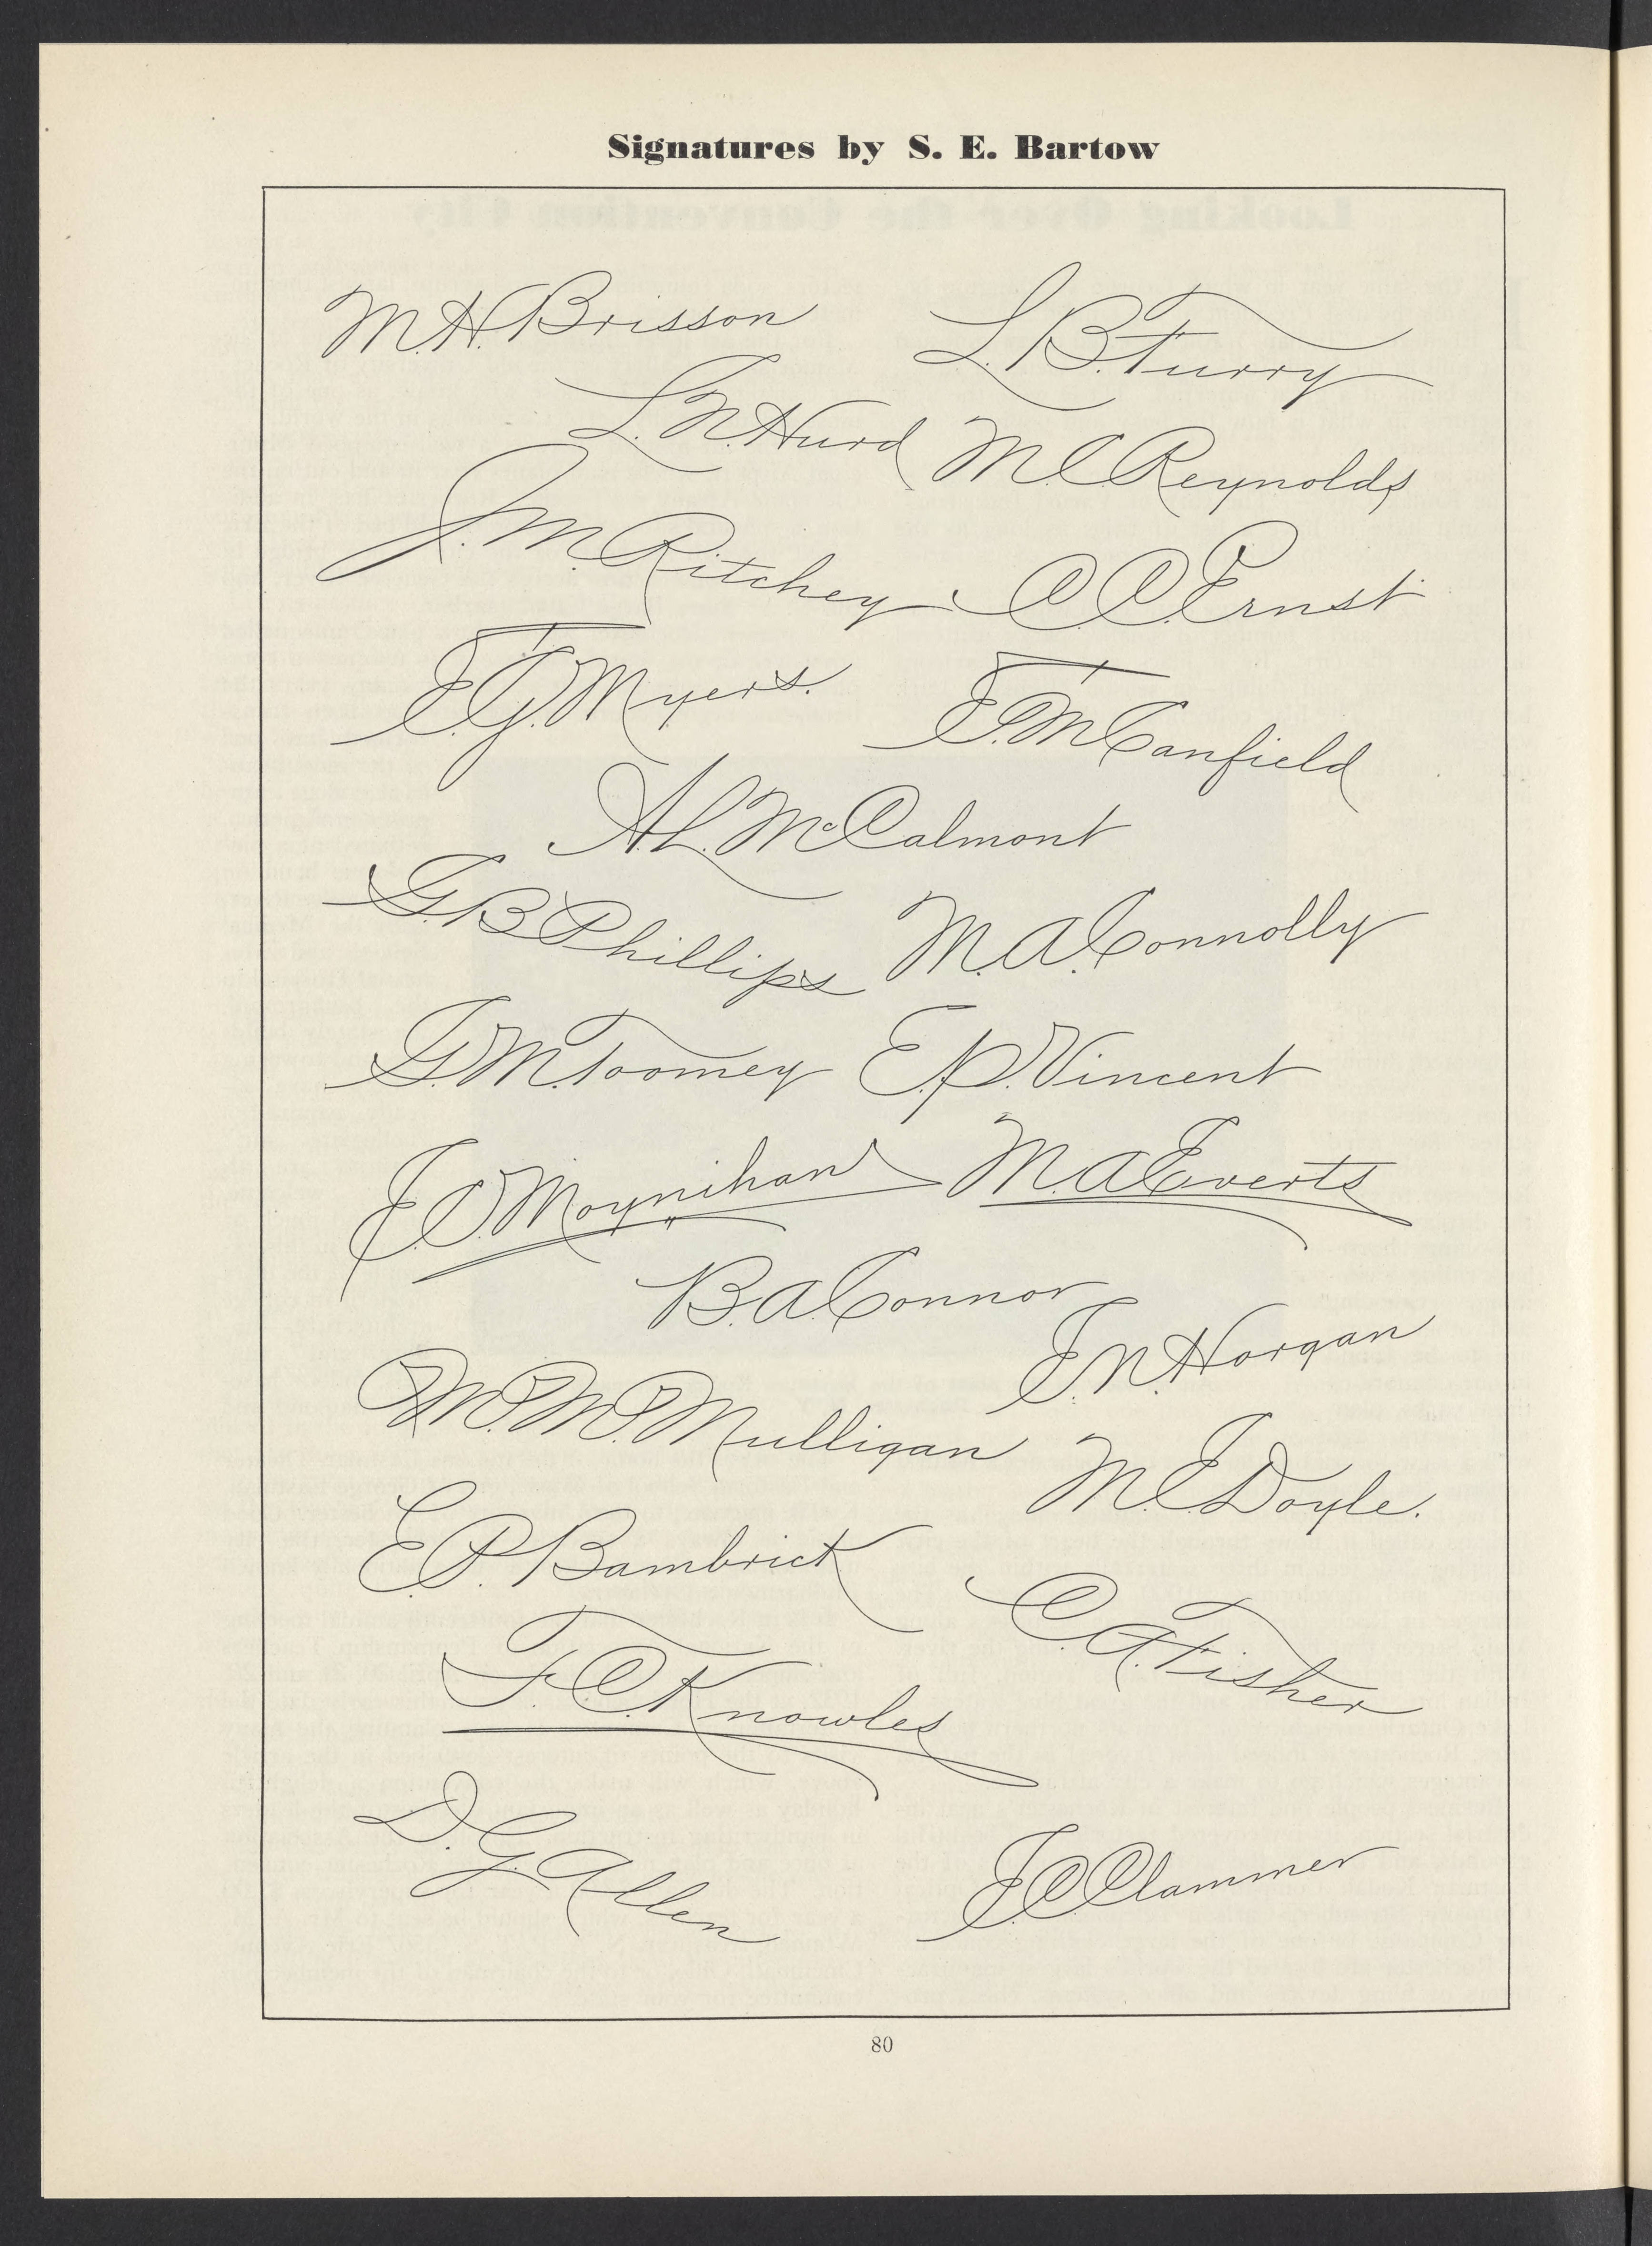 Signatures by S. E. Bartow
M. H. Brisson
L. B. Furry
L. N. Hurd
M. C. Reynolds
J. M. Ritchey
C. C. Ernst
E. G. Myers.
E. M. Canfield
A. L. McCalmont
G. B. Phillips
M. A. Connolly
G. M. Toomey
E. P. Vincent
J. O. Moynihan
M. A. Everts
B. A. Connor
J. N. Horgan
M. M. Mulligan
M. E. Doyle.
E. P. Bambrick
C. A. Fisher
F. C. Knowles
D. G. Allen
J. C. Clammer
80